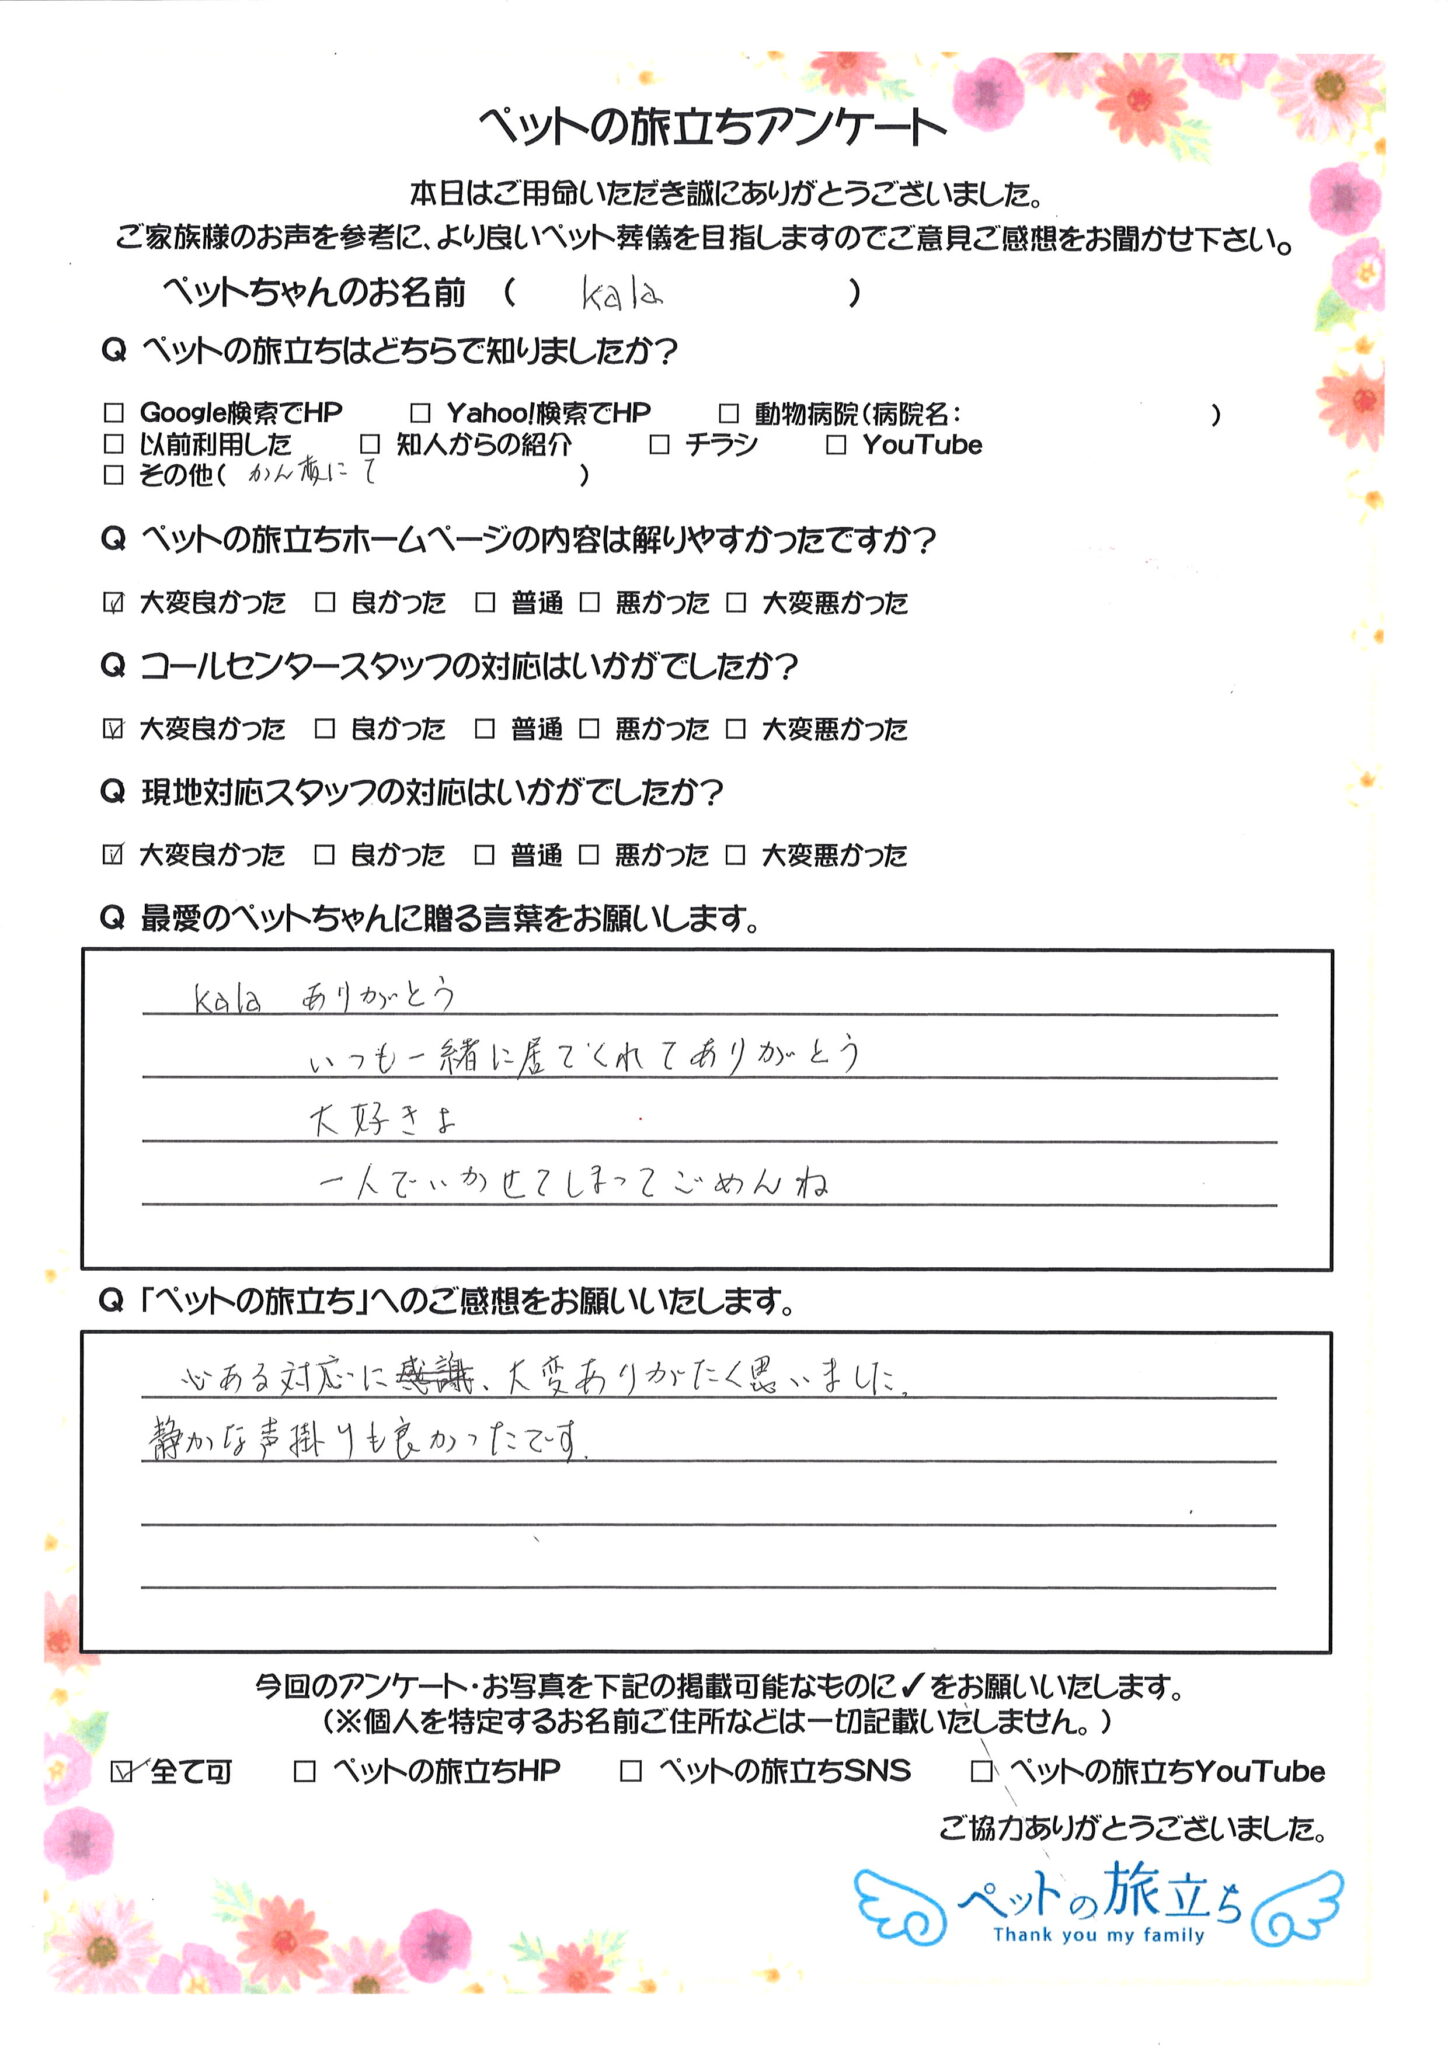 ペットの旅立ちアンケート
本日はご用命いただき誠にありがとうございました。
ご家族様のお声を参考に、より良いペット葬儀を目指しますのでご意見ご感想をお聞かせ下さい。
ペットちゃんのお名前 ( kala )
Q ペットの旅立ちはどちらで知りましたか?
□ Google検索でHP □ Yahoo!検索でHP □ 動物病院(病院名: )
□ 以前利用した □ 知人からの紹介 □ チラシ □ YouTube
□ その他( かん にて )
Q ペットの旅立ちホームページの内容は解りやすかったですか?
☑ 大変良かった □ 良かった □ 普通 □ 悪かった □ 大変悪かった
Q コールセンタースタッフの対応はいかがでしたか?
☑ 大変良かった □ 良かった □ 普通 □ 悪かった □ 大変悪かった
Q 現地対応スタッフの対応はいかがでしたか?
☑ 大変良かった □ 良かった □ 普通 □ 悪かった □ 大変悪かった
Q 最愛のペットちゃんに贈る言葉をお願いします。
kala ありがとう
いつも一緒に居てくれてありがとう
大好きよ
一人でいかせてしまってごめんね
Q 「ペットの旅立ち」へのご感想をお願いいたします。
心ある対応に感謝、大変ありがたく思いました。
静かな声掛りも良かったです.
今回のアンケート・お写真を下記の掲載可能なものに✓をお願いいたします。
(※個人を特定するお名前ご住所などは一切記載いたしません。)
☑ 全て可 □ ペットの旅立ちHP □ ペットの旅立ちSNS □ ペットの旅立ちYouTube
ご協力ありがとうございました。
ペットの旅立ち
Thank you my family